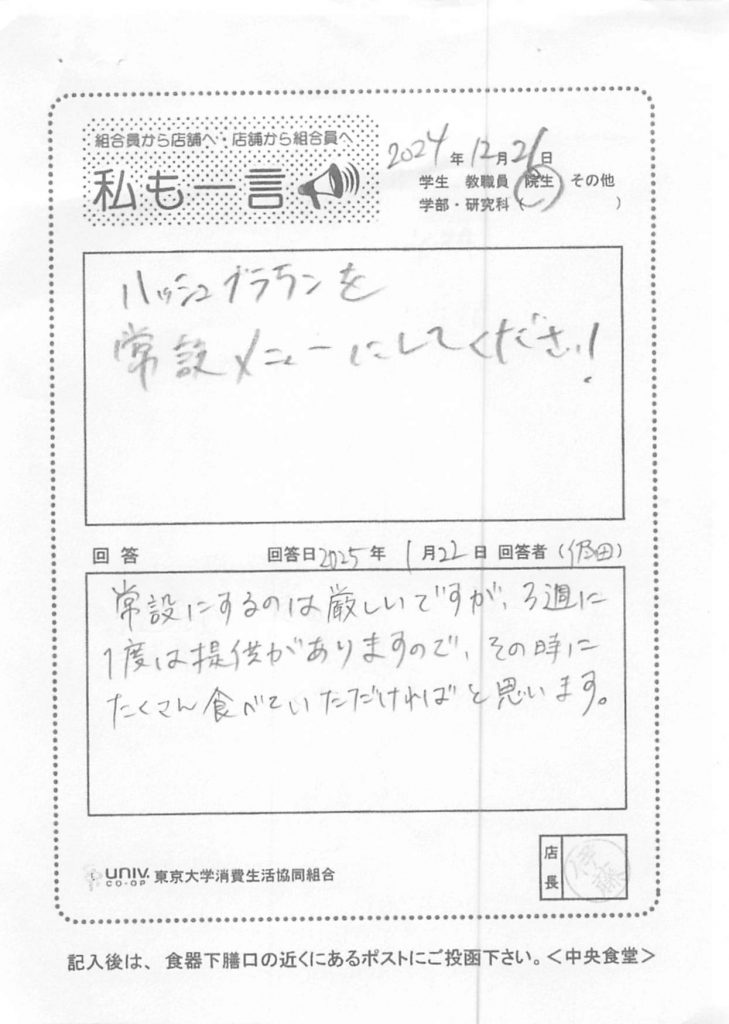 組合員から店舗へ・店舗から組合員へ
私も一言
2024年12月26日
学生 教職員 院生 その他
学部・研究科( )
ハッシュブラウンを
常設メニューにしてください!
回答 回答日2025年1月22日 回答者( 田)
常設にするのは厳しいですが、3週に
1度は提供がありますので、その時に
たくさん食べていただければと思います。
店長
伊藤
UNIV. CO-OP 東京大学消費生活協同組合
記入後は、食器下膳口の近くにあるポストにご投函下さい。<中央食堂>